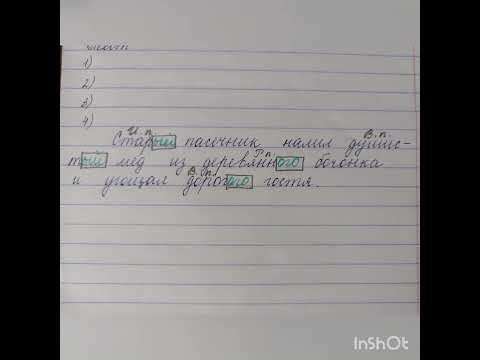 1)
2)
3)
4)
И. п В. п.
Старый пасечник налил душис-
Р п
тый мед из деревянного бочонка
В. п.
и угощал дорогого гостя.
InShOt